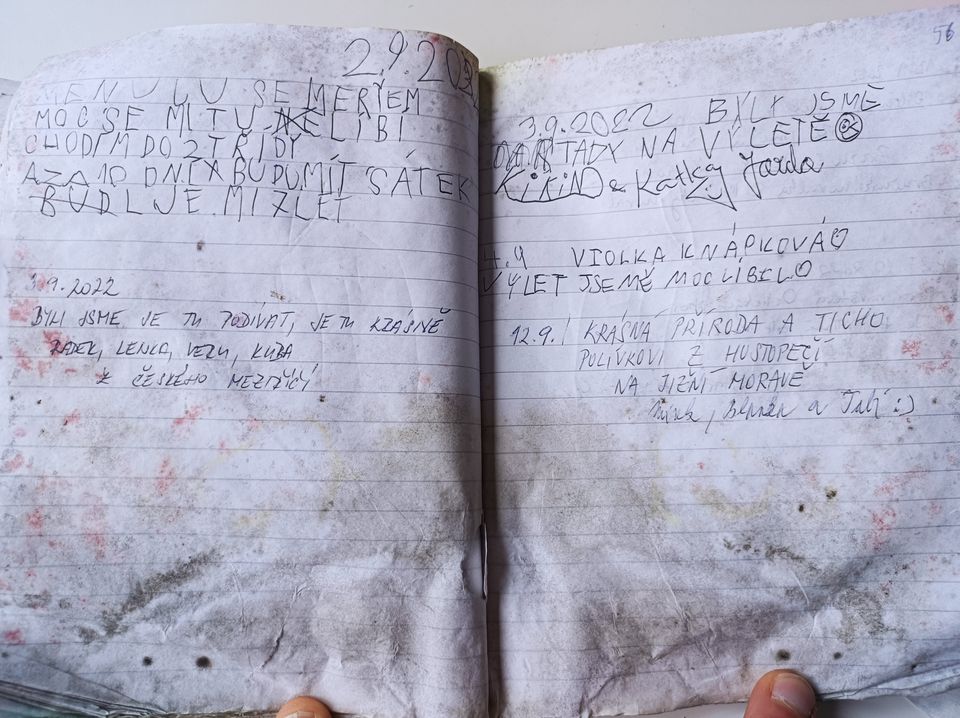 2.9.202
MENUJU SE MERYEM
MOC SE MI TU LÍBÍ
CHODÍM DO 2 TŘÍDY
AZA 10 DNÍ BUDU MÍT SÁTEK
BUDL JE MI 7 LET
3.9.2022
BYLI JSME SE TU PODÍVAT, JE TU KRÁSNĚ
RADEK, LENKA, VERU, KUBA
Z ČESKÉHO MEZIŘÍČÍ
56
3.9.2022 BYLY JSME
TADY NA VÝLETĚ
KiKiN & Katky Jarda
4.9 VIOLKA KNÁPKOVÁ
VÝLET JSEMĚ MOC LÍBILO
12.9. KRÁSNÁ PŘÍRODA A TICHO
POLÍVKOVI Z HUSTOPEČÍ
NA JIŽNÍ MORAVĚ
a :)